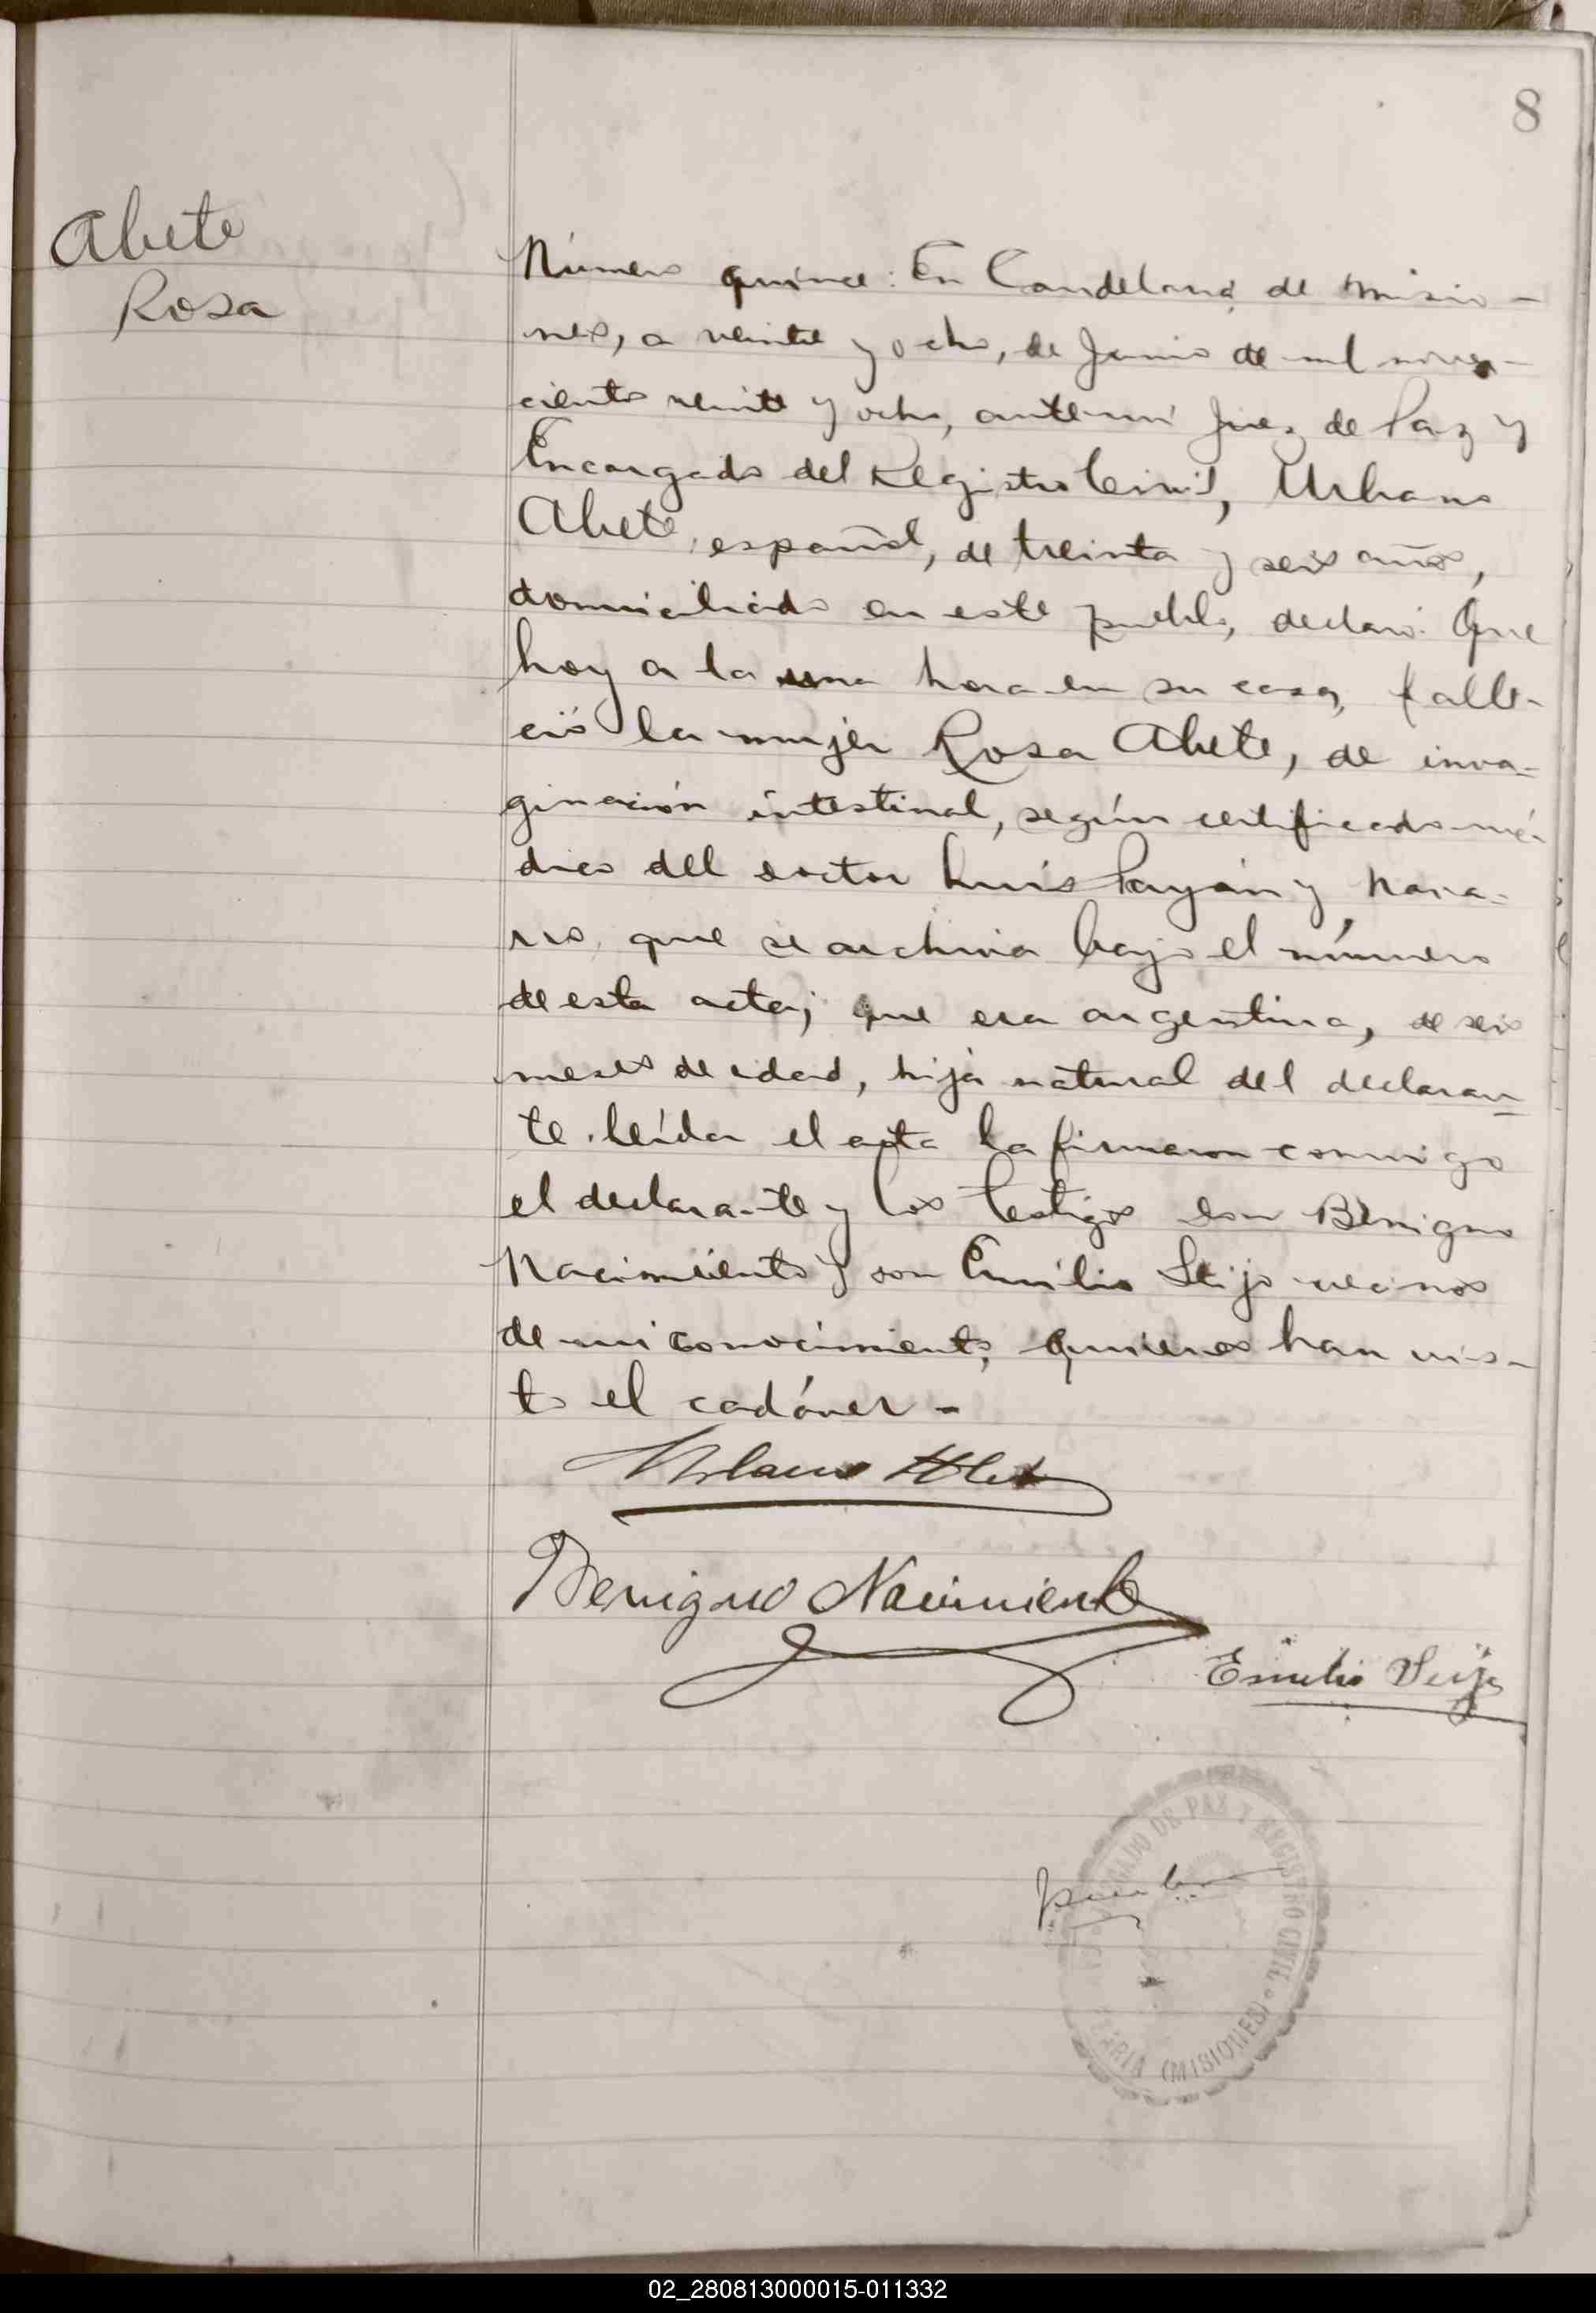 8
Abete
Rosa
Número quince: En Candelaria de Misio-
nes, a veinte y ocho, de Junio de mil nove-
cientos veinte y ocho, ante mi Juez de Paz y
Encargado del Registro Civil, Urbano
Abete, español, de treinta y seis años,
domiciliado en este pueblo, declaró: Que
hoy a la una hora en su casa, falle-
ció la mujer Rosa Abete, de inva-
ginación intestinal, según certificado mé-
dico del doctor Luis Payán y Nava-
rro, que se archiva bajo el número
de esta acta; que era argentina, de seis
meses de edad, hija natural del declaran-
te. Leída el acta la firmaron conmigo
el declarante y los testigos don Benigno
Nacimiento y don Emilio Seijo vecinos
de mi conocimiento, quienes han vis-
to el cadáver.-
Urbano Abete
Benigno Nacimiento
Emilio Seijo
JUZGADO DE PAZ Y REGISTRO CIVIL
(MISIONES)
02_280813000015-011332